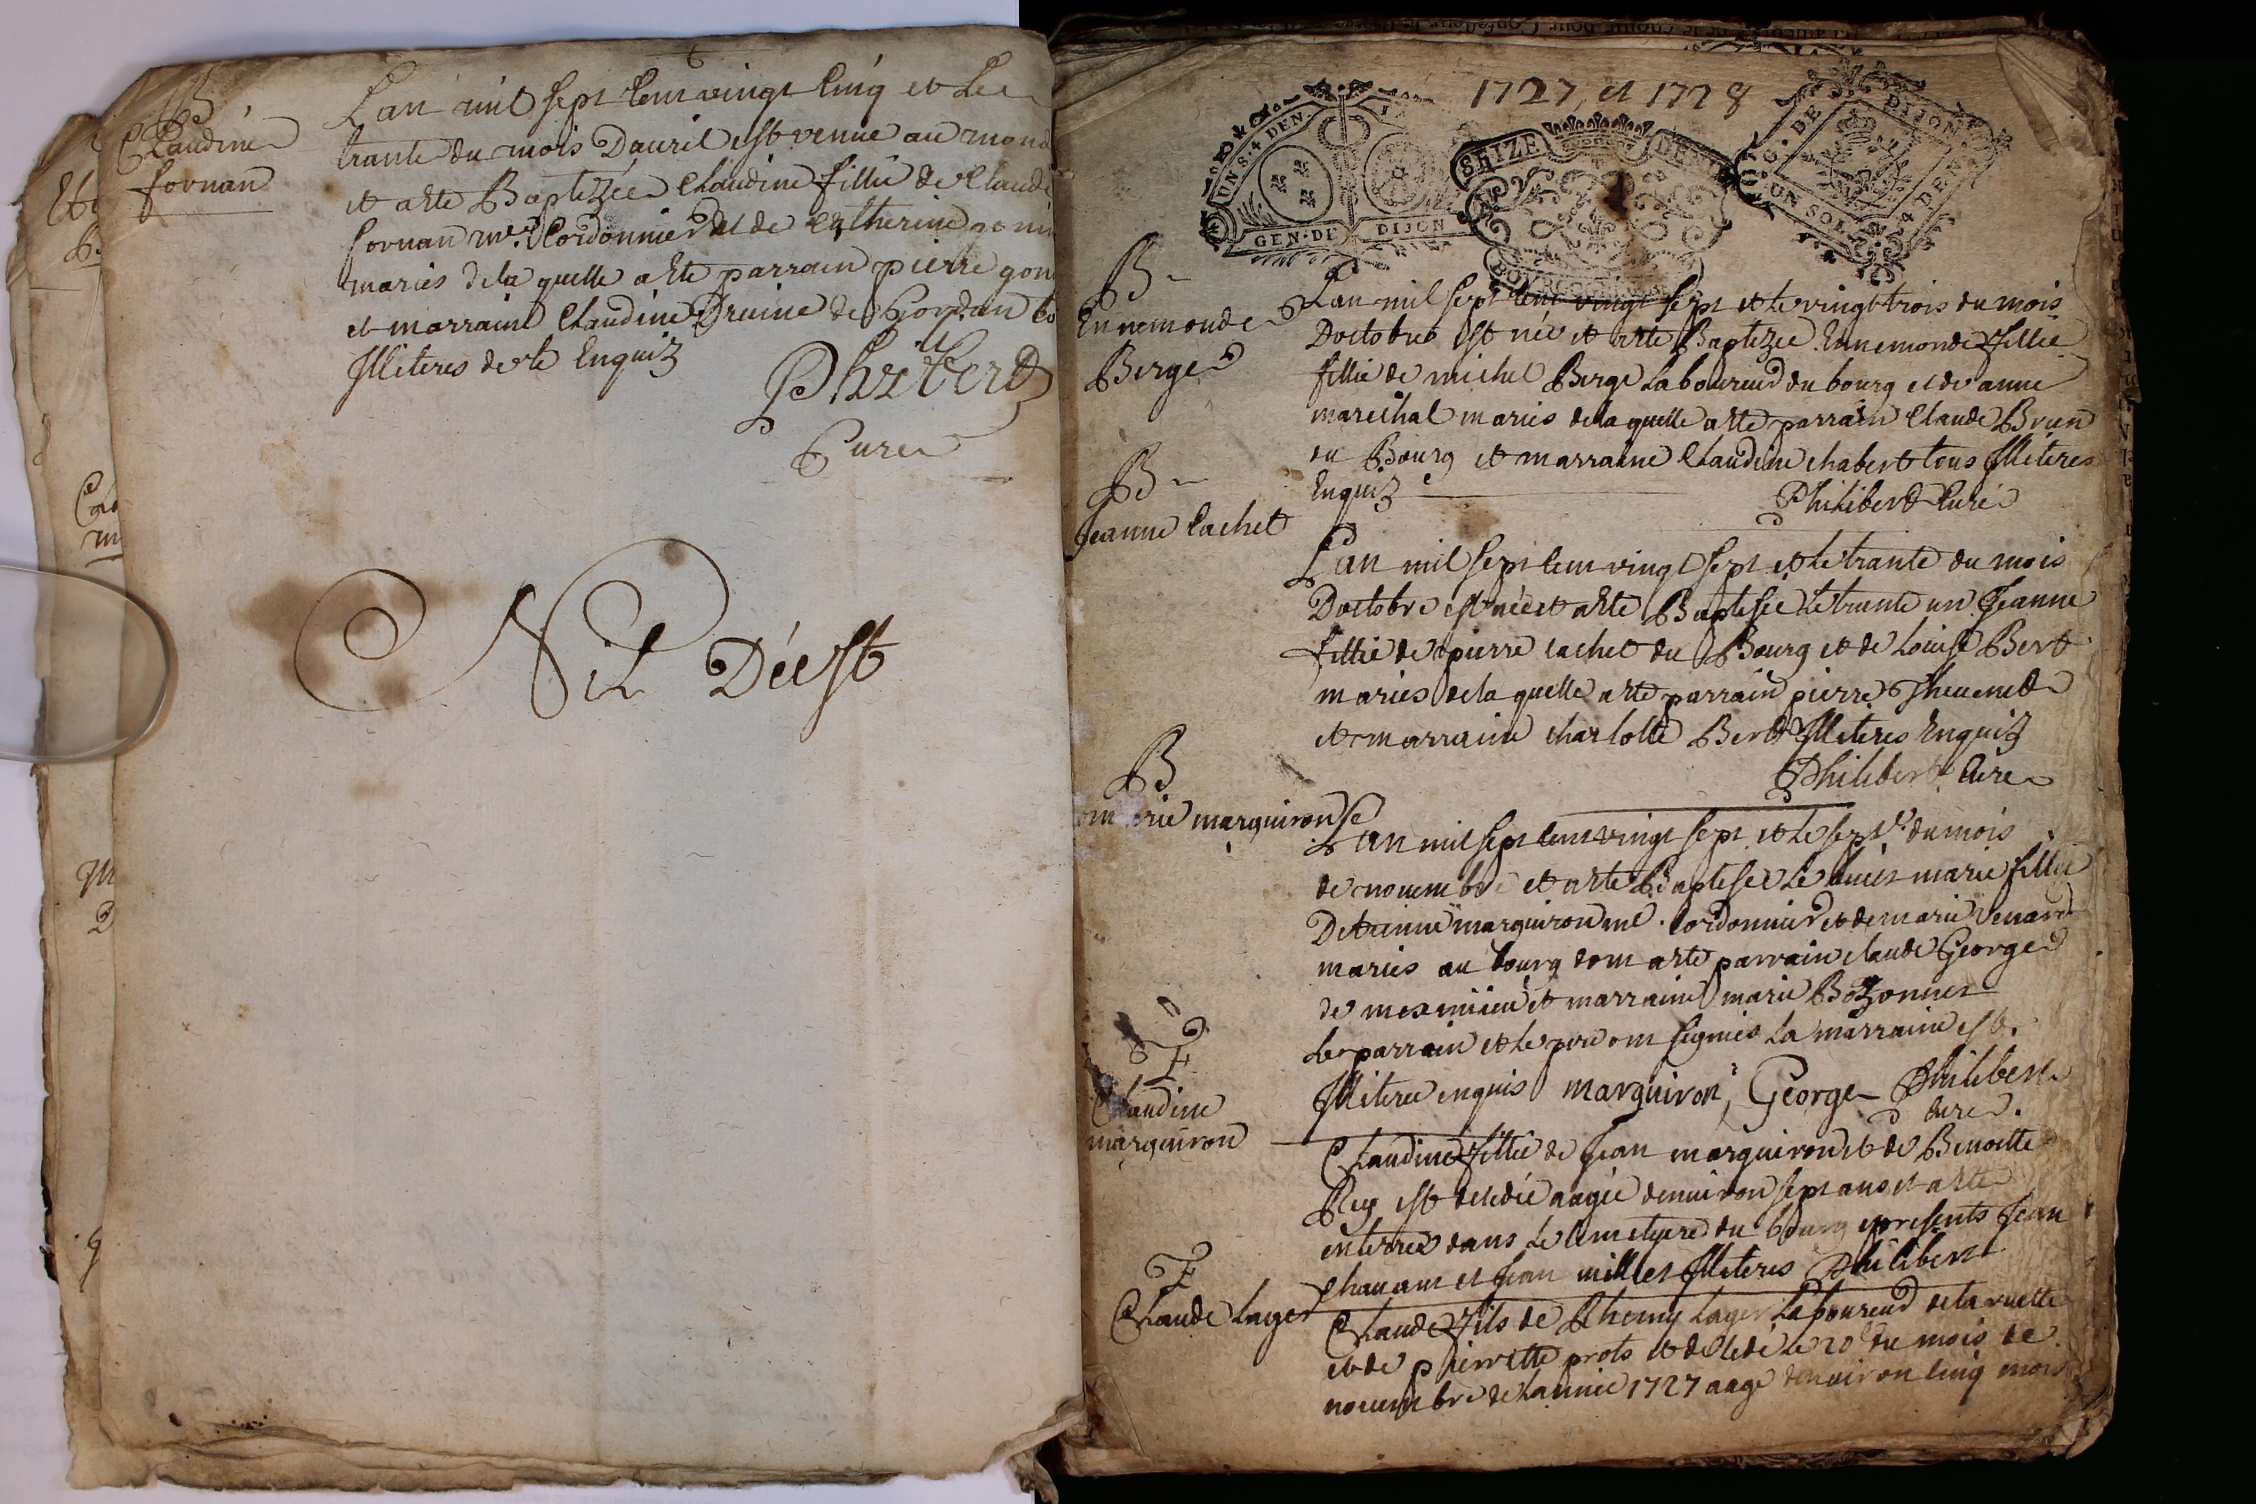 B
Claudine
fornan
Lan mil sept cent vingt cinq et le
trante du mois Dauril est venue au mond
et a este Baptizée Claudine fillie de Claude
fornan mre Cordonnier et de Catherine
mariés de la quelle a este parrain pierre
et marraine Claudine Druine de
Illiteres de ce Enquiz
Philibert
Cure
Nil Déest
1727, et 1728
UN S. 4 DEN.
GEN. DE DIJON
SEIZE DEN
G. DE DIJON
UN SOL 4 DEN
B
Ennemonde
Berger
Lan mil sept cent vingt sept et le vingt trois du mois
Doctobre est née et a este Baptizée Ennemonde fillie
fillie de michel Berge Laboureur du bourg et de anne
marechal mariés de la quelle a este parrain Claude Brun
du Bourg et marraine Claudine chabert tous Illiteres
Enquiz
Philibert Curé
B
Jeanne Cachet
Lan mil sept cent vingt sept et le trante du mois
Doctobre est née et a este Baptisée le trante un Jeanne
fillie de pierre cachet du Bourg et de Louise Bert
mariés de la quelle a este parrain pierre Theuenet
et marraine charlotte Bert Illiteres Enquiz
Philibert Cure
B
marie marquiron
Lan mil sept cent vingt sept et le sept du mois
de nouembre et a este Baptisée le huict marie fillie
De marquiron me. Cordonnier et de marie Venard
mariés au bourg dont a este parrain claude George
de meximieu et marraine marie Bozonnier
Le parrain et le pere ont signés La marraine est
Illiteree enquis marquiron, George Philibert
Cure.
F
Claudine
marquiron
Claudine fillie de Jean marquiron et de Benoitte
Rey est decedée aagée denuiron sept ans et a este
enterrée dans le cimetiere du bourg presents Jean
chauant et Jean millet Illiteres Philibert
F
Claude Lager
Claude fils de Rhemy Lager Laboureur de la ruette
et de pierrette prots et decedé le 20e du mois de
nouembre de Lannée 1727 aagé denuiron cinq mois